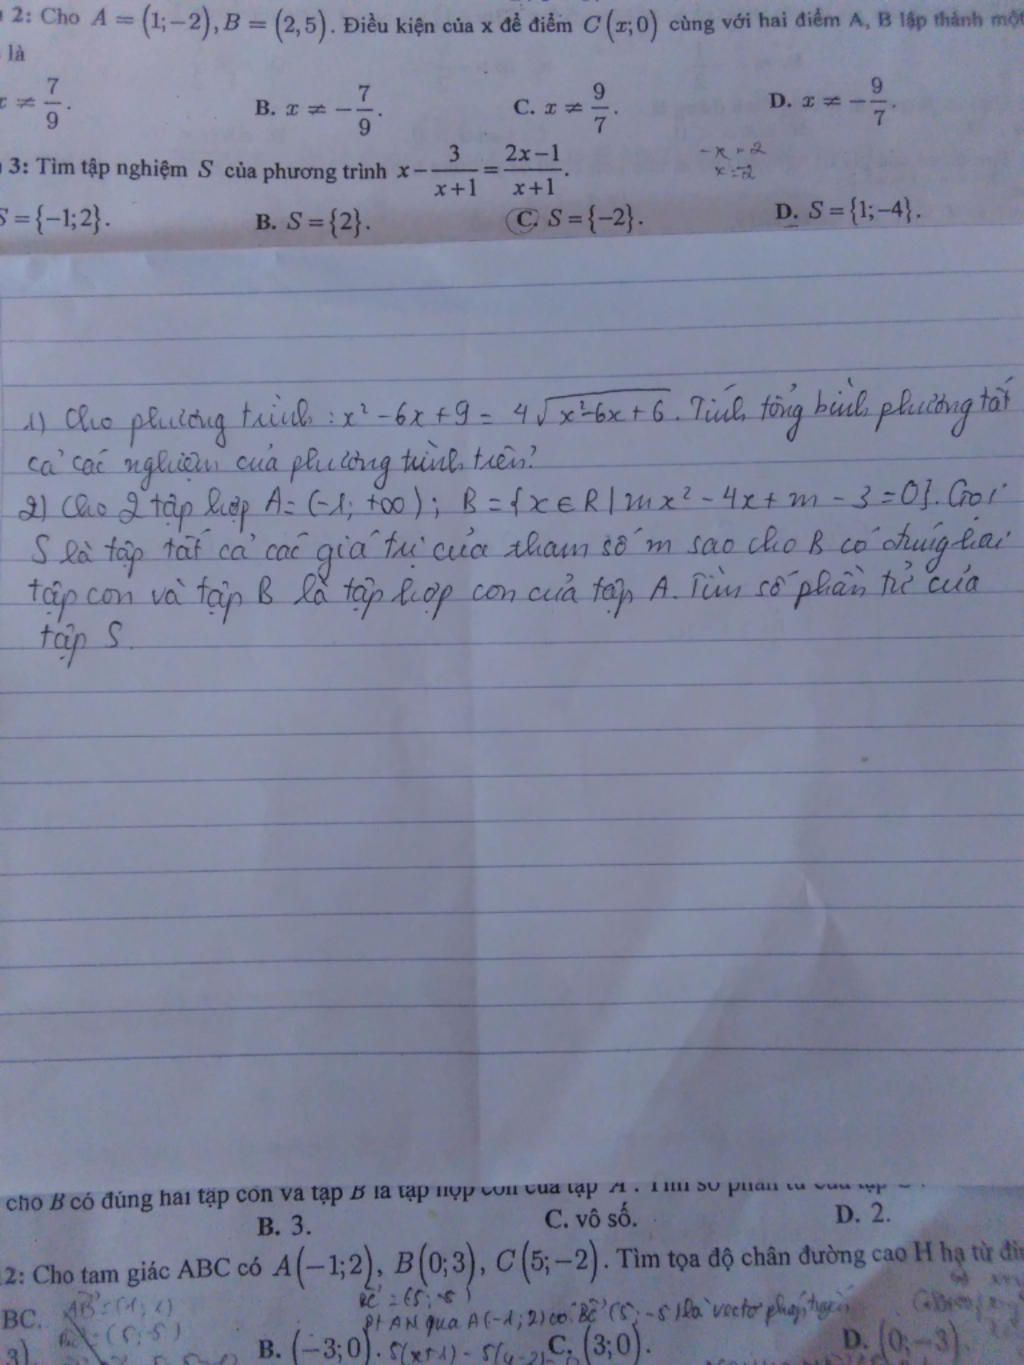 2: Cho A = (1;−2), B = (2,5). Điều kiện của x để điểm C(x;0) cùng với hai điểm A, B lập thành một
là
x ≠ 7/9. B. x ≠ −7/9. C. x ≠ 9/7. D. x ≠ −9/7.
3: Tìm tập nghiệm S của phương trình x − 3/(x+1) = (2x−1)/(x+1).
−x = 2
x = −2
S = {−1;2}. B. S = {2}. C. S = {−2}. D. S = {1;−4}.
1) Cho phương trình : x² − 6x + 9 = 4√(x²−6x+6). Tính tổng bình phương tất
cả các nghiệm của phương trình trên?
2) Cho 2 tập hợp A = (−1; +∞); B = {x ∈ R | mx² − 4x + m − 3 = 0}. Gọi
S là tập tất cả các giá trị của tham số m sao cho B có đúng hai
tập con và tập B là tập hợp con của tập A. Tìm số phần tử của
tập S.
cho B có đúng hai tập con và tập B là tập hợp con của tập A. Tìm số phần tử của tập
B. 3. C. vô số. D. 2.
2: Cho tam giác ABC có A(−1;2), B(0;3), C(5;−2). Tìm tọa độ chân đường cao H hạ từ
BC. AB = (1; 1) BC = (5; −5)
= (5; −5) Pt AH qua A(−1; 2) có BC (5; −5) là vectơ pháp tuyến
B. (−3;0). 5(x+1) − 5(y−2) C. (3;0). D. (0;−3).